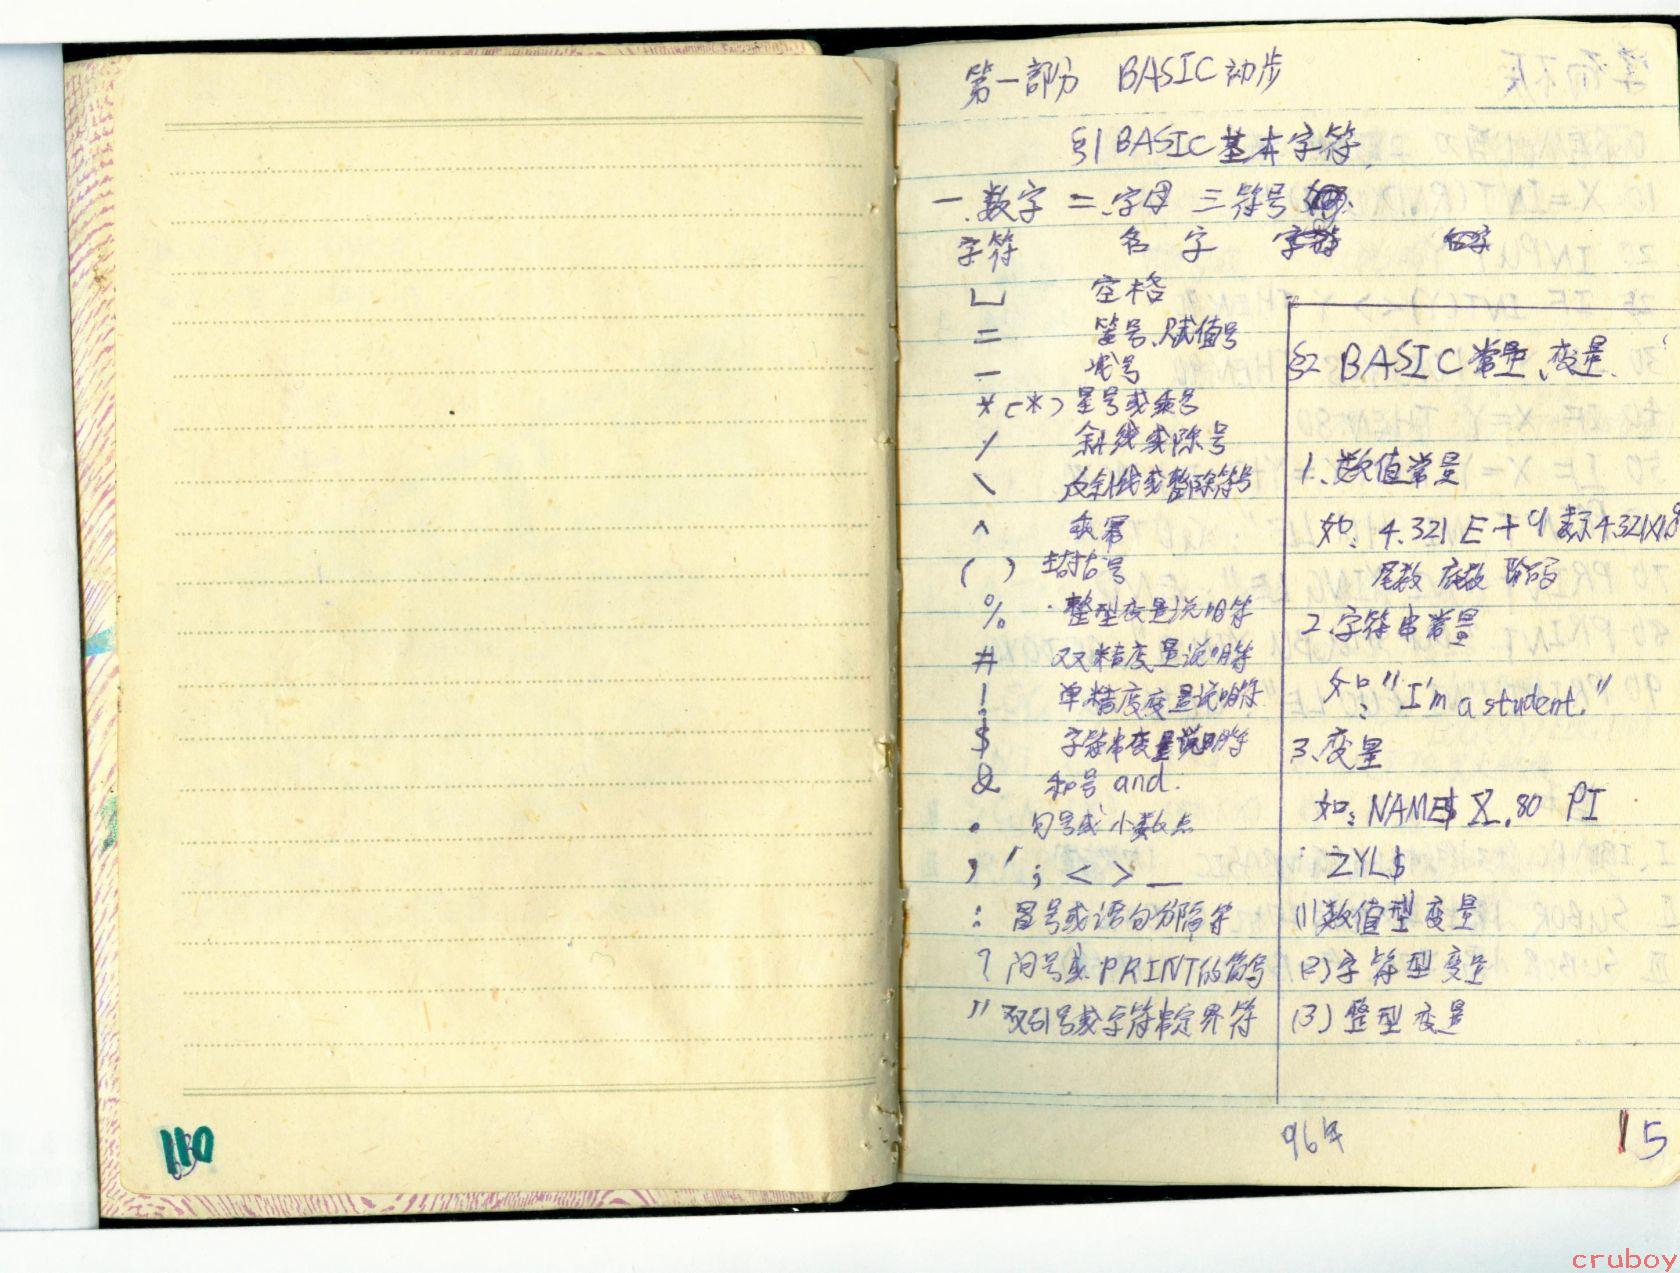 第一部分 BASIC初步
§1 BASIC基本字符
一、数字 二、字母 三 符号
字符 名 字 字符 名字
␣ 空格
= 等号、赋值号
— 减号
* (*) 星号或乘号
/ 斜线或除号
\ 反斜线或整除符号
^ 乘幂
( ) 括号
% 整型变量说明符
# 双精度量说明符
! 单精度变量说明符
$ 字符串变量说明符
& 和号 and.
. 句号或小数点
, ' ; < > _
: 冒号或语句分隔符
? 问号或PRINT的简号
" 双引号或字符串定界符
§2 BASIC常量、变量.
1、数值常量
如: 4.321 E+9 表示4.321×10⁹
尾数 底数 阶码
2.字符串常量
如:"I'm a student."
3、变量
如: NAME$ X.80 PI
ZYL$
(1)数值型变量
(2)字符型变量
(3)整型变量
96年
15
110
cruboy